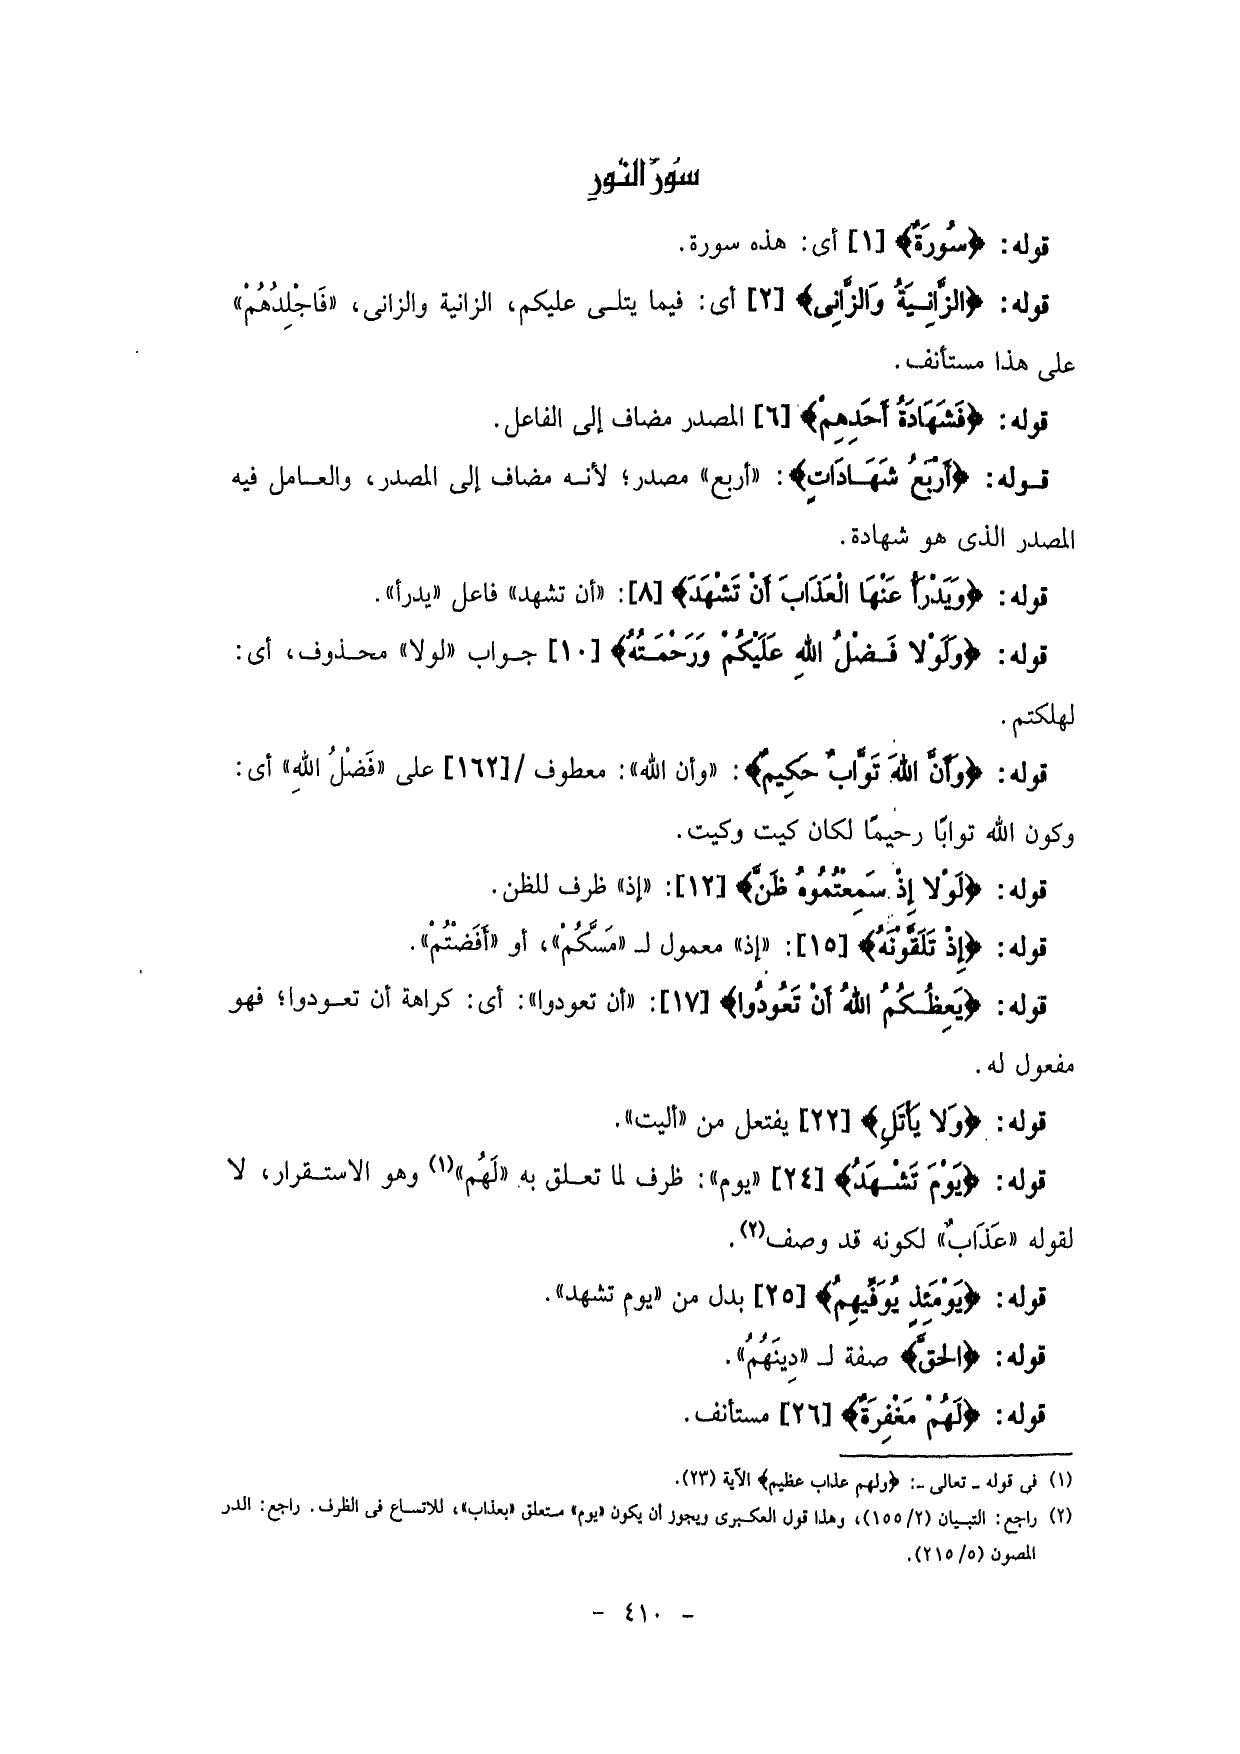 سورة النور
قوله: ﴿سُورَةٌ﴾ [١] أى: هذه سورة.
قوله: ﴿الزَّانِيَةُ وَالزَّانِى﴾ [٢] أى: فيما يتلى عليكم، الزانية والزانى، «فَاجْلِدُهُمْ»
على هذا مستأنف.
قوله: ﴿فَشَهَادَةُ أَحَدِهِمْ﴾ [٦] المصدر مضاف إلى الفاعل.
قوله: ﴿أَرْبَعُ شَهَادَاتٍ﴾: «أربع» مصدر؛ لأنه مضاف إلى المصدر، والعامل فيه
المصدر الذى هو شهادة.
قوله: ﴿وَيَدْرَأُ عَنْهَا الْعَذَابَ أَنْ تَشْهَدَ﴾ [٨]: «أن تشهد» فاعل «يدرأ».
قوله: ﴿وَلَوْلا فَضْلُ اللهِ عَلَيْكُمْ وَرَحْمَتُهُ﴾ [١٠] جواب «لولا» محذوف، أى:
لهلكتم.
قوله: ﴿وَأَنَّ اللهَ تَوَّابٌ حَكِيمٌ﴾: «وأن الله»: معطوف /[١٦٢] على «فَضْلُ اللهِ» أى:
وكون الله توابًا رحيمًا لكان كيت وكيت.
قوله: ﴿لَوْلا إِذْ سَمِعْتُمُوهُ ظَنَّ﴾ [١٢]: «إذ» ظرف للظن.
قوله: ﴿إِذْ تَلَقَّوْنَهُ﴾ [١٥]: «إذ» معمول لـ «مَسَّكُمْ»، أو «أَفَضْتُمْ».
قوله: ﴿يَعِظُكُمُ اللهُ أَنْ تَعُودُوا﴾ [١٧]: «أن تعودوا»: أى: كراهة أن تعودوا؛ فهو
مفعول له.
قوله: ﴿وَلا يَأْتَلِ﴾ [٢٢] يفتعل من «أليت».
قوله: ﴿يَوْمَ تَشْهَدُ﴾ [٢٤] «يوم»: ظرف لما تعلق به «لَهُم»(١) وهو الاستقرار، لا
لقوله «عَذَابٌ» لكونه قد وصف(٢).
قوله: ﴿يَوْمَئِذٍ يُوَفِّيهِمُ﴾ [٢٥] بدل من «يوم تشهد».
قوله: ﴿الحَقَّ﴾ صفة لـ «دِينَهُمُ».
قوله: ﴿لَهُمْ مَغْفِرَةٌ﴾ [٢٦] مستأنف.
(١) فى قوله ـ تعالى ـ: ﴿ولهم عذاب عظيم﴾ الآية (٢٣).
(٢) راجع: التبيان (١٥٥/٢)، وهذا قول العكبرى ويجوز أن يكون «يوم» متعلق «بعذاب»، للاتساع فى الظرف. راجع: الدر
المصون (٢١٥/٥).
- ٤١٠ -